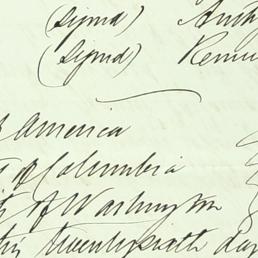 (Signed)
(Signed)
America
of Columbia
of Washington
twenty sixth day